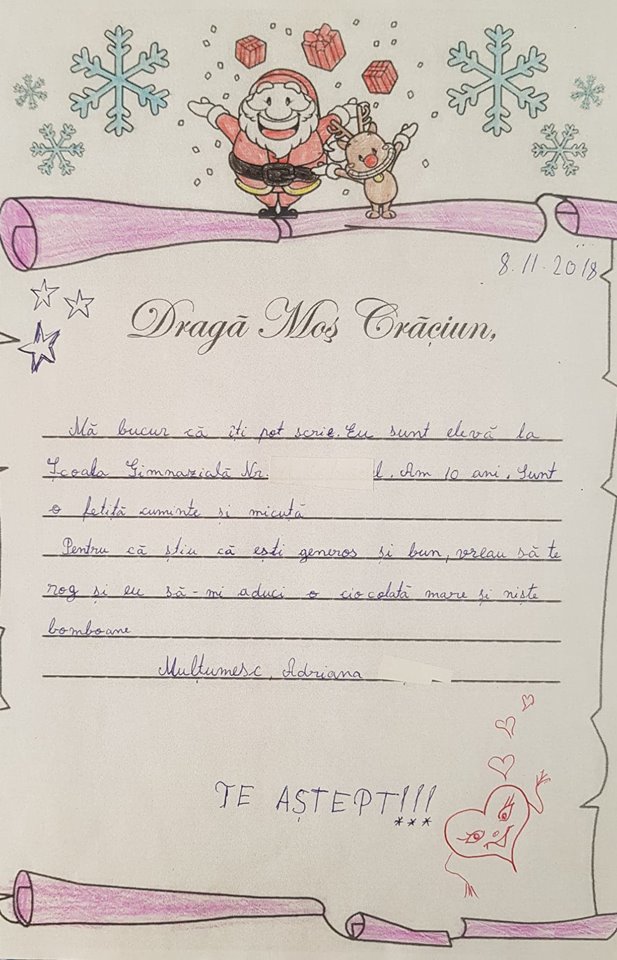 8.11.2018
Dragă Moș Crăciun,
Mă bucur că îți pot scrie. Eu sunt elevă la
Școala Gimnazială Nr. l. Am 10 ani. Sunt
o fetiță cuminte și micuță
Pentru că știu că ești generos și bun, vreau să te
rog și eu să-mi aduci o ciocolată mare și niște
bomboane
Mulțumesc, Adriana
TE AȘTEPT!!!